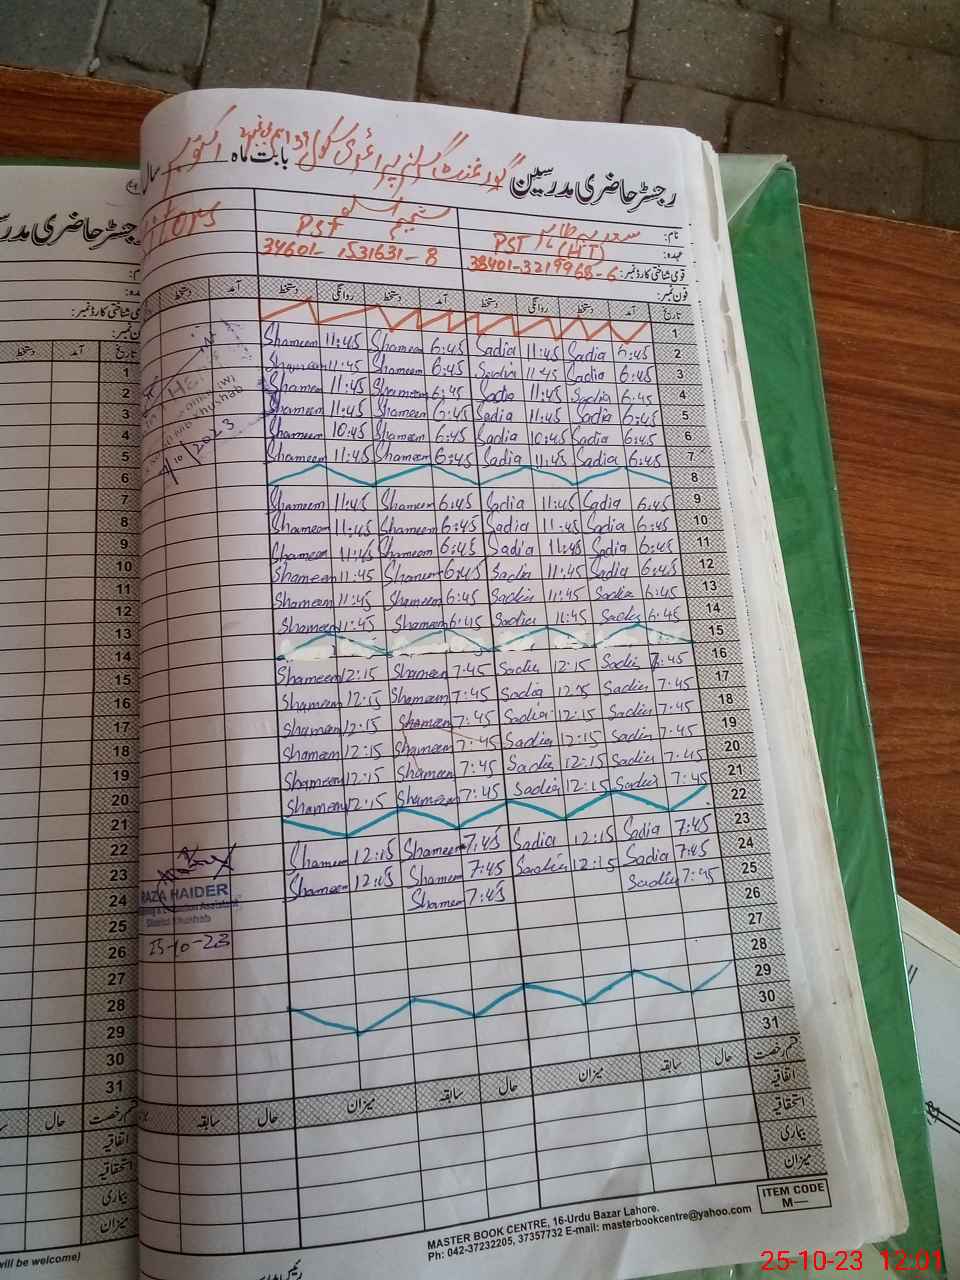 رجسٹر حاضری مدرسین گورنمنٹ گرلز پرائمری سکول بابت ماہ اکتوبر سال
نام: سعدیہ شمیم اسلم Visitors
عہدہ: PST (HT) PST
قومی شناختی کارڈ نمبر: 38401-3219968-6 34601-1531631-8
فون نمبر:
تاریخ آمد دستخط روانگی دستخط آمد دستخط روانگی دستخط آمد دستخط
1
Shameem 11:45 Shameem 6:45 Sadia 11:45 Sadia 6:45 2
Shameem 11:45 Shameem 6:45 Sadia 11:45 Sadia 6:45 3
Shameem 11:45 Shameem 6:45 Sadia 11:45 Sadia 6:45 4
Shameem 11:45 Shameem 6:45 Sadia 11:45 Sadia 6:45 5
Shameem 10:45 Shameem 6:45 Sadia 10:45 Sadia 6:45 6
Shameem 11:45 Shameem 6:45 Sadia 11:45 Sadia 6:45 7
8
Shameem 11:45 Shameem 6:45 Sadia 11:45 Sadia 6:45 9
Shameem 11:45 Shameem 6:45 Sadia 11:45 Sadia 6:45 10
Shameem 11:45 Shameem 6:45 Sadia 11:45 Sadia 6:45 11
Shameem 11:45 Shameem 6:45 Sadia 11:45 Sadia 6:45 12
Shameem 11:45 Shameem 6:45 Sadia 11:45 Sadia 6:45 13
Shameem 11:45 Shameem 6:45 Sadia 11:45 Sadia 6:45 14
15
Shameem 12:15 Shameem 7:45 Sadia 12:15 Sadia 7:45 16
Shameem 12:15 Shameem 7:45 Sadia 12:15 Sadia 7:45 17
Shameem 12:15 Shameem 7:45 Sadia 12:15 Sadia 7:45 18
Shameem 12:15 Shameem 7:45 Sadia 12:15 Sadia 7:45 19
Shameem 12:15 Shameem 7:45 Sadia 12:15 Sadia 7:45 20
Shameem 12:15 Shameem 7:45 Sadia 12:15 Sadia 7:45 21
22
Shameem 12:15 Shameem 7:45 Sadia 12:15 Sadia 7:45 23
Shameem 12:15 Shameem 7:45 Sadia 12:15 Sadia 7:45 24
Shameem 7:45 Sadia 7:45 25
26
27
28
29
30
31
RAZA HAIDER
District Khushab
25-10-23
قسم رخصت حال سابقہ میزان حال سابقہ میزان حال سابقہ
اتفاقیہ
استحقاقیہ
بیماری
میزان
رجسٹر حاضری مدر
تاریخ آمد دستخط
1
2
3
4
5
6
7
8
9
10
11
12
13
14
15
16
17
18
19
20
21
22
23
24
25
26
27
28
29
30
31
قسم رخصت حال
اتفاقیہ
استحقاقیہ
بیماری
میزان
will be welcome)
MASTER BOOK CENTRE, 16-Urdu Bazar Lahore.
Ph: 042-37232205, 37357732 E-mail: masterbookcentre@yahoo.com
ITEM CODE
M—
25-10-23 12:01